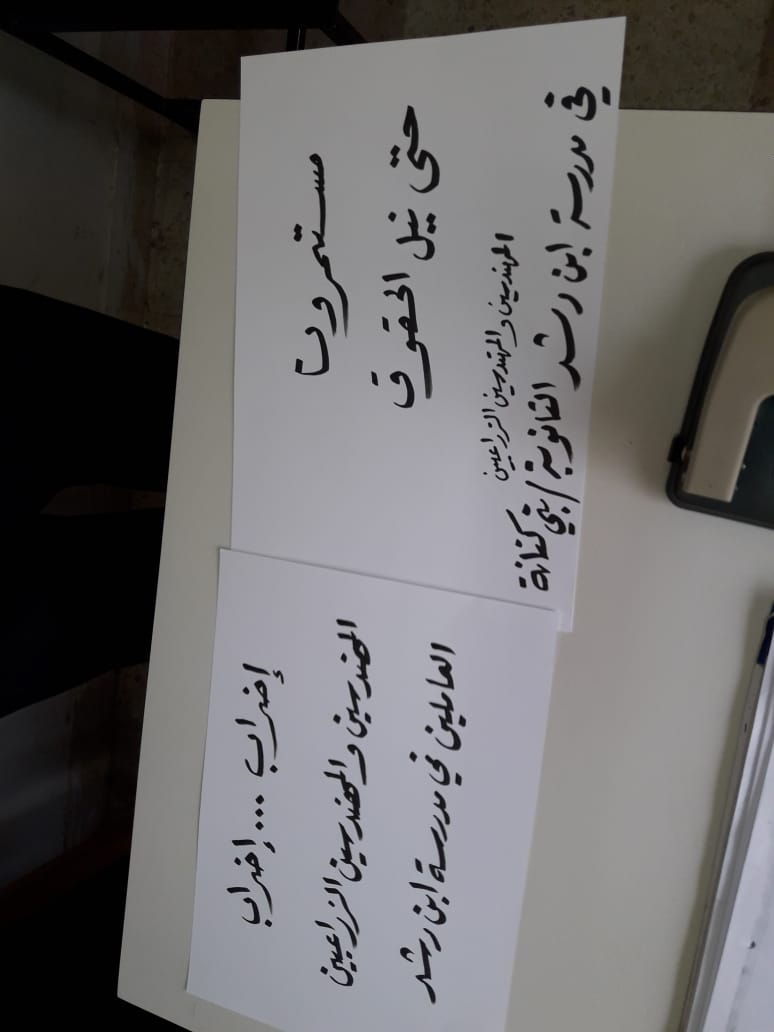 مستمرون
حتى نيل الحقوق
المهندسين والمهندسين الزراعيين
في مدرسة ابن رشد الثانوية / بني كنانة
إضراب ... إضراب
المهندسين والمهندسين الزراعيين
العاملين في مدرسة ابن رشد